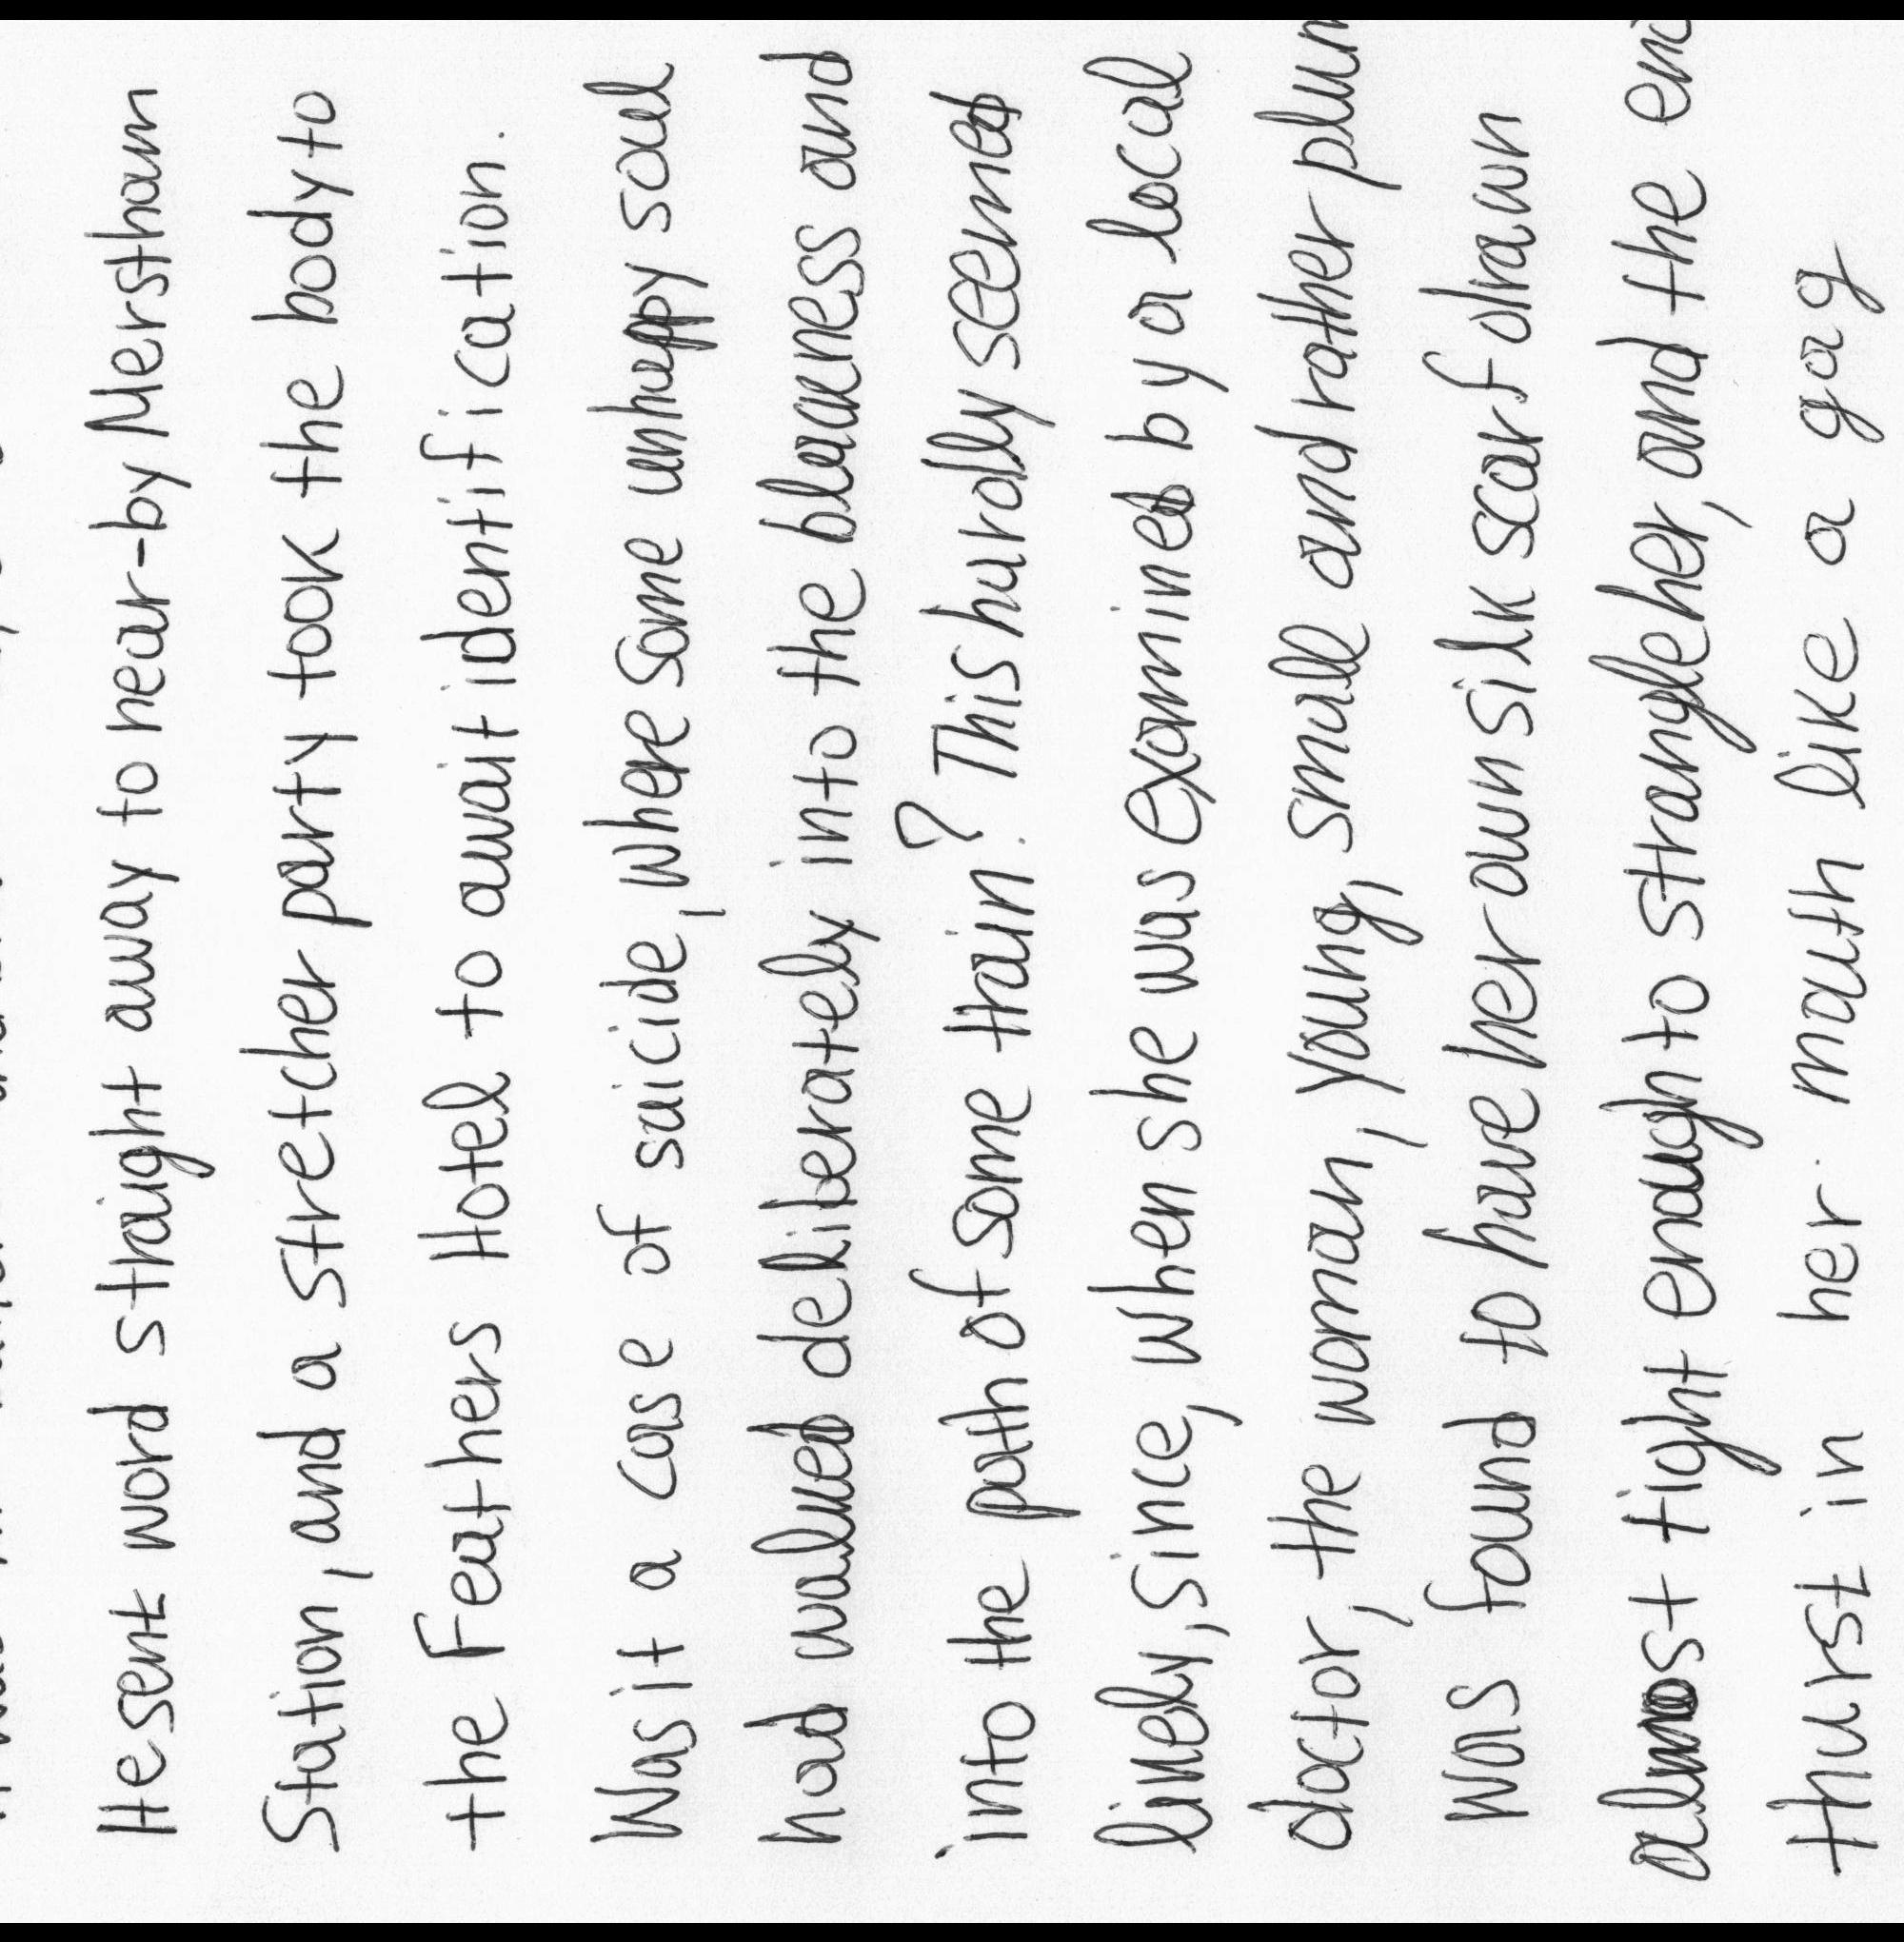 He sent word straight away to near-by Merstham
Station, and a stretcher party took the body to
the Feathers Hotel to await identification.
Was it a case of suicide, where some unhappy soul
had walked deliberately into the blackness and
into the path of some train? This hardly seemed
likely, since, when she was examined by a local
doctor, the woman, young, small and rather plum
was found to have her own silk scarf drawn
almost tight enough to strangle her, and the end
thurst in her mouth like a gag